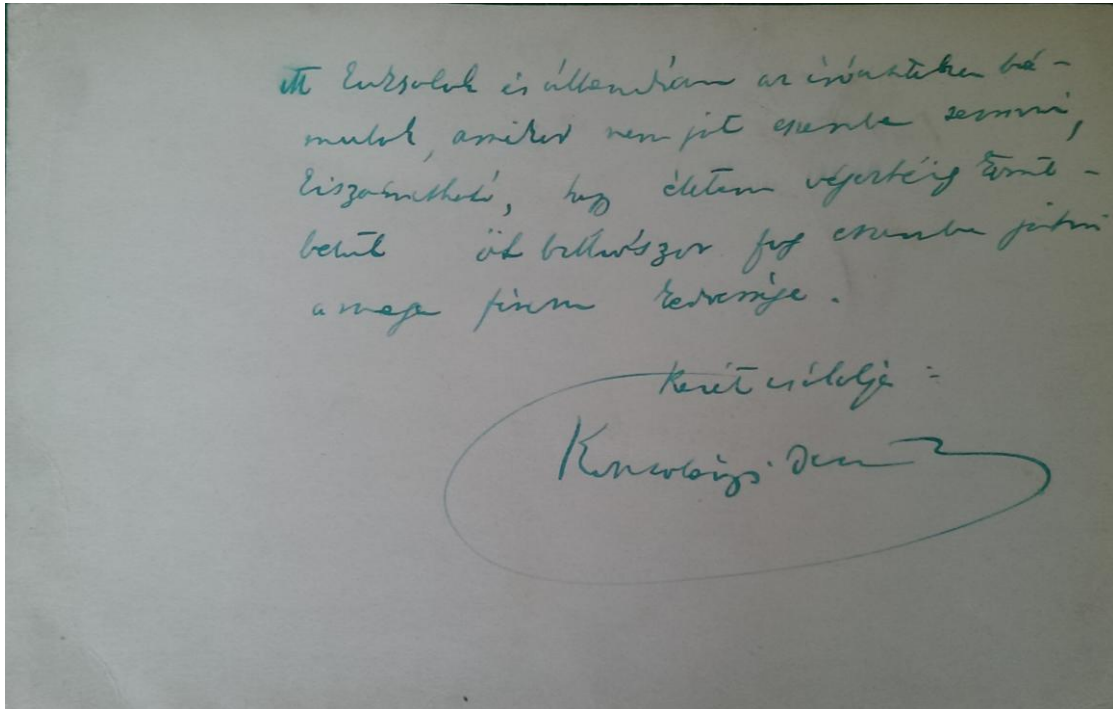 itt kuksolok és állandóan az bá-
mulok, amikor nem jut eszembe semmi,
kiszámítható, hogy életem végeztéig körül-
belül öt billiószor fog eszembe jutni
a maga finom kedvessége.
Kezét csókolja:
Kosztolányi Dezső